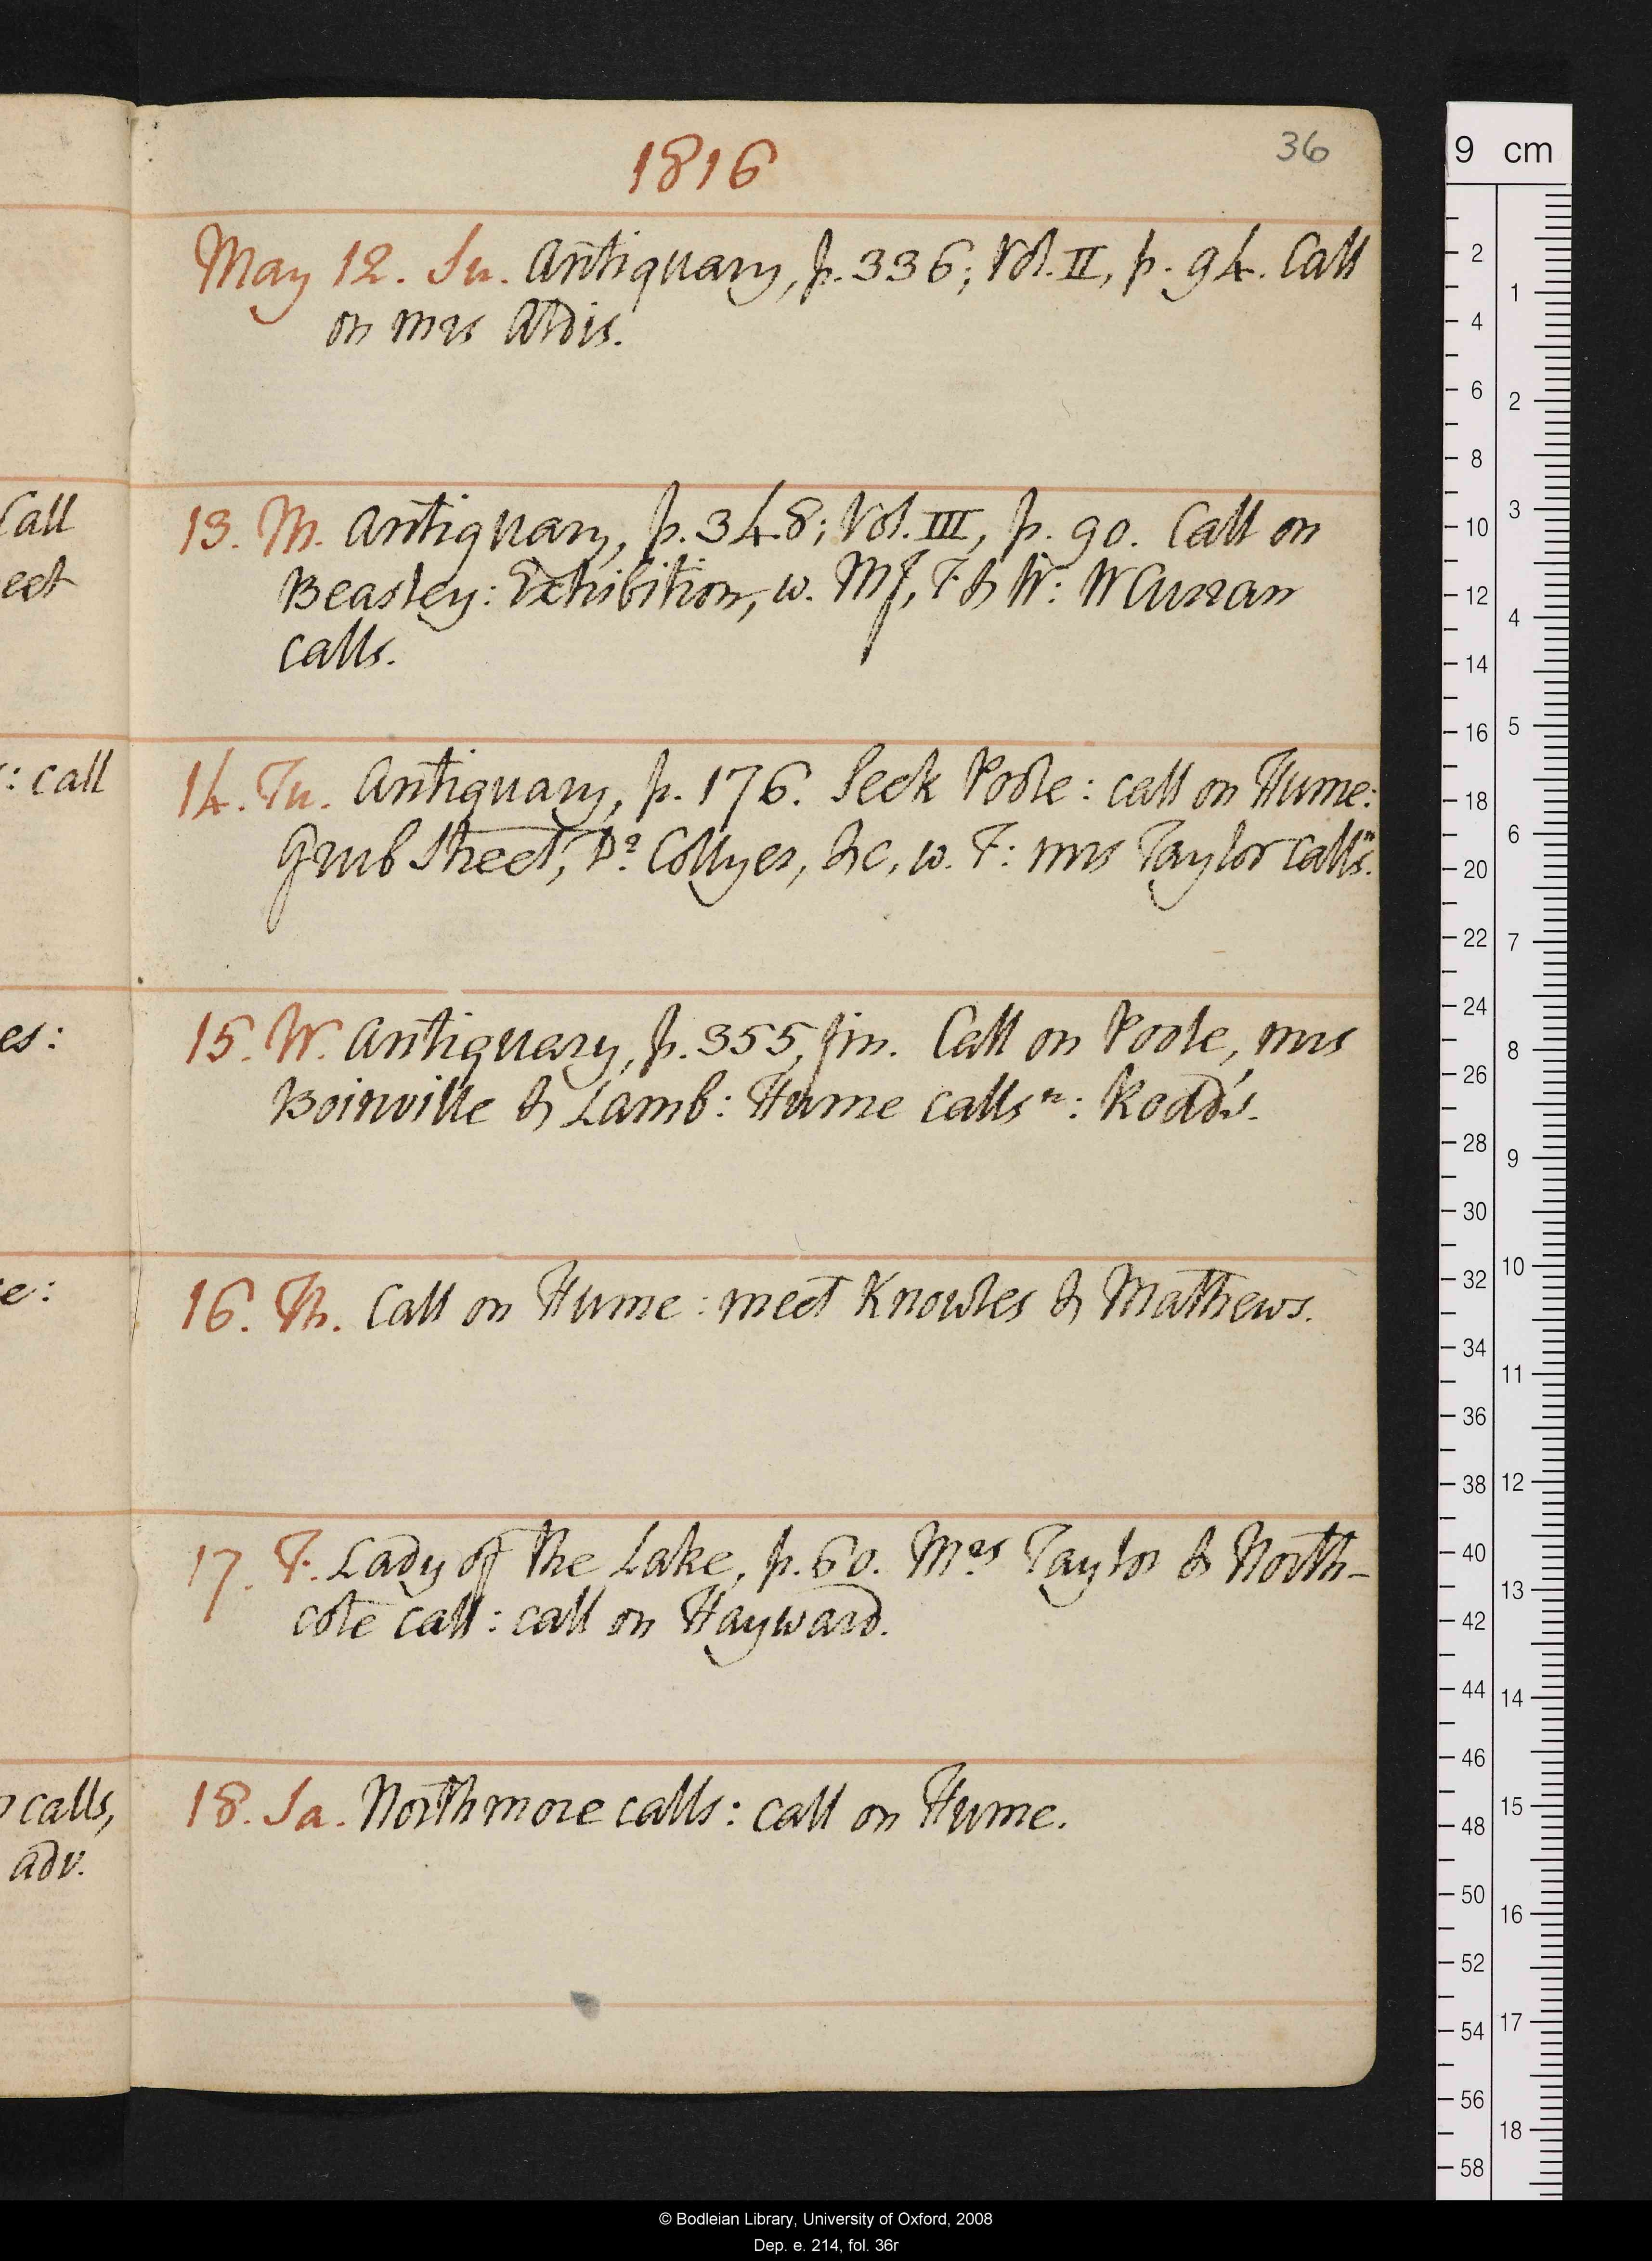 1816
36
May 12. Su. Antiquary, p. 336; Vol. II, p. 94. Call
on Mrs Aldis.
13. M. Antiquary, p. 348; Vol. III, p. 90. Call on
Beasley: Exhibition, w. MJ, F & W: W Curran
calls.
14. Tu. Antiquary, p. 176. Seek Poole: call on Hume:
Grub Street, Dr Collyer, &c, w. F: Mrs Taylor calls n.
15. W. Antiquary, p. 355, fin. Call on Poole, Mrs
Boinville & Lamb: Hume calls n: Rodd's.
16. Th. Call on Hume: meet Knowles & Mathews.
17. F. Lady of the Lake, p. 60. Mrs Taylor & North-
cote call: call on Hayward.
18. Sa. Northmore calls: call on Hume.
Call
eet
: call
es:
e:
calls,
adv.
9 cm
2
4
6
8
10
12
14
16
18
20
22
24
26
28
30
32
34
36
38
40
42
44
46
48
50
52
54
56
58
1
2
3
4
5
6
7
8
9
10
11
12
13
14
15
16
17
18
© Bodleian Library, University of Oxford, 2008
Dep. e. 214, fol. 36r